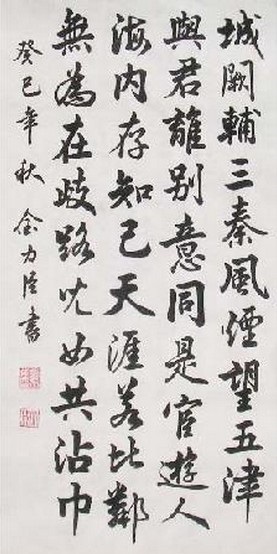 城闕輔三秦風煙望五津
與君離別意同是宦遊人
海内存知己天涯若比鄰
無為在歧路兒女共沾巾
癸巳年秋 力 書